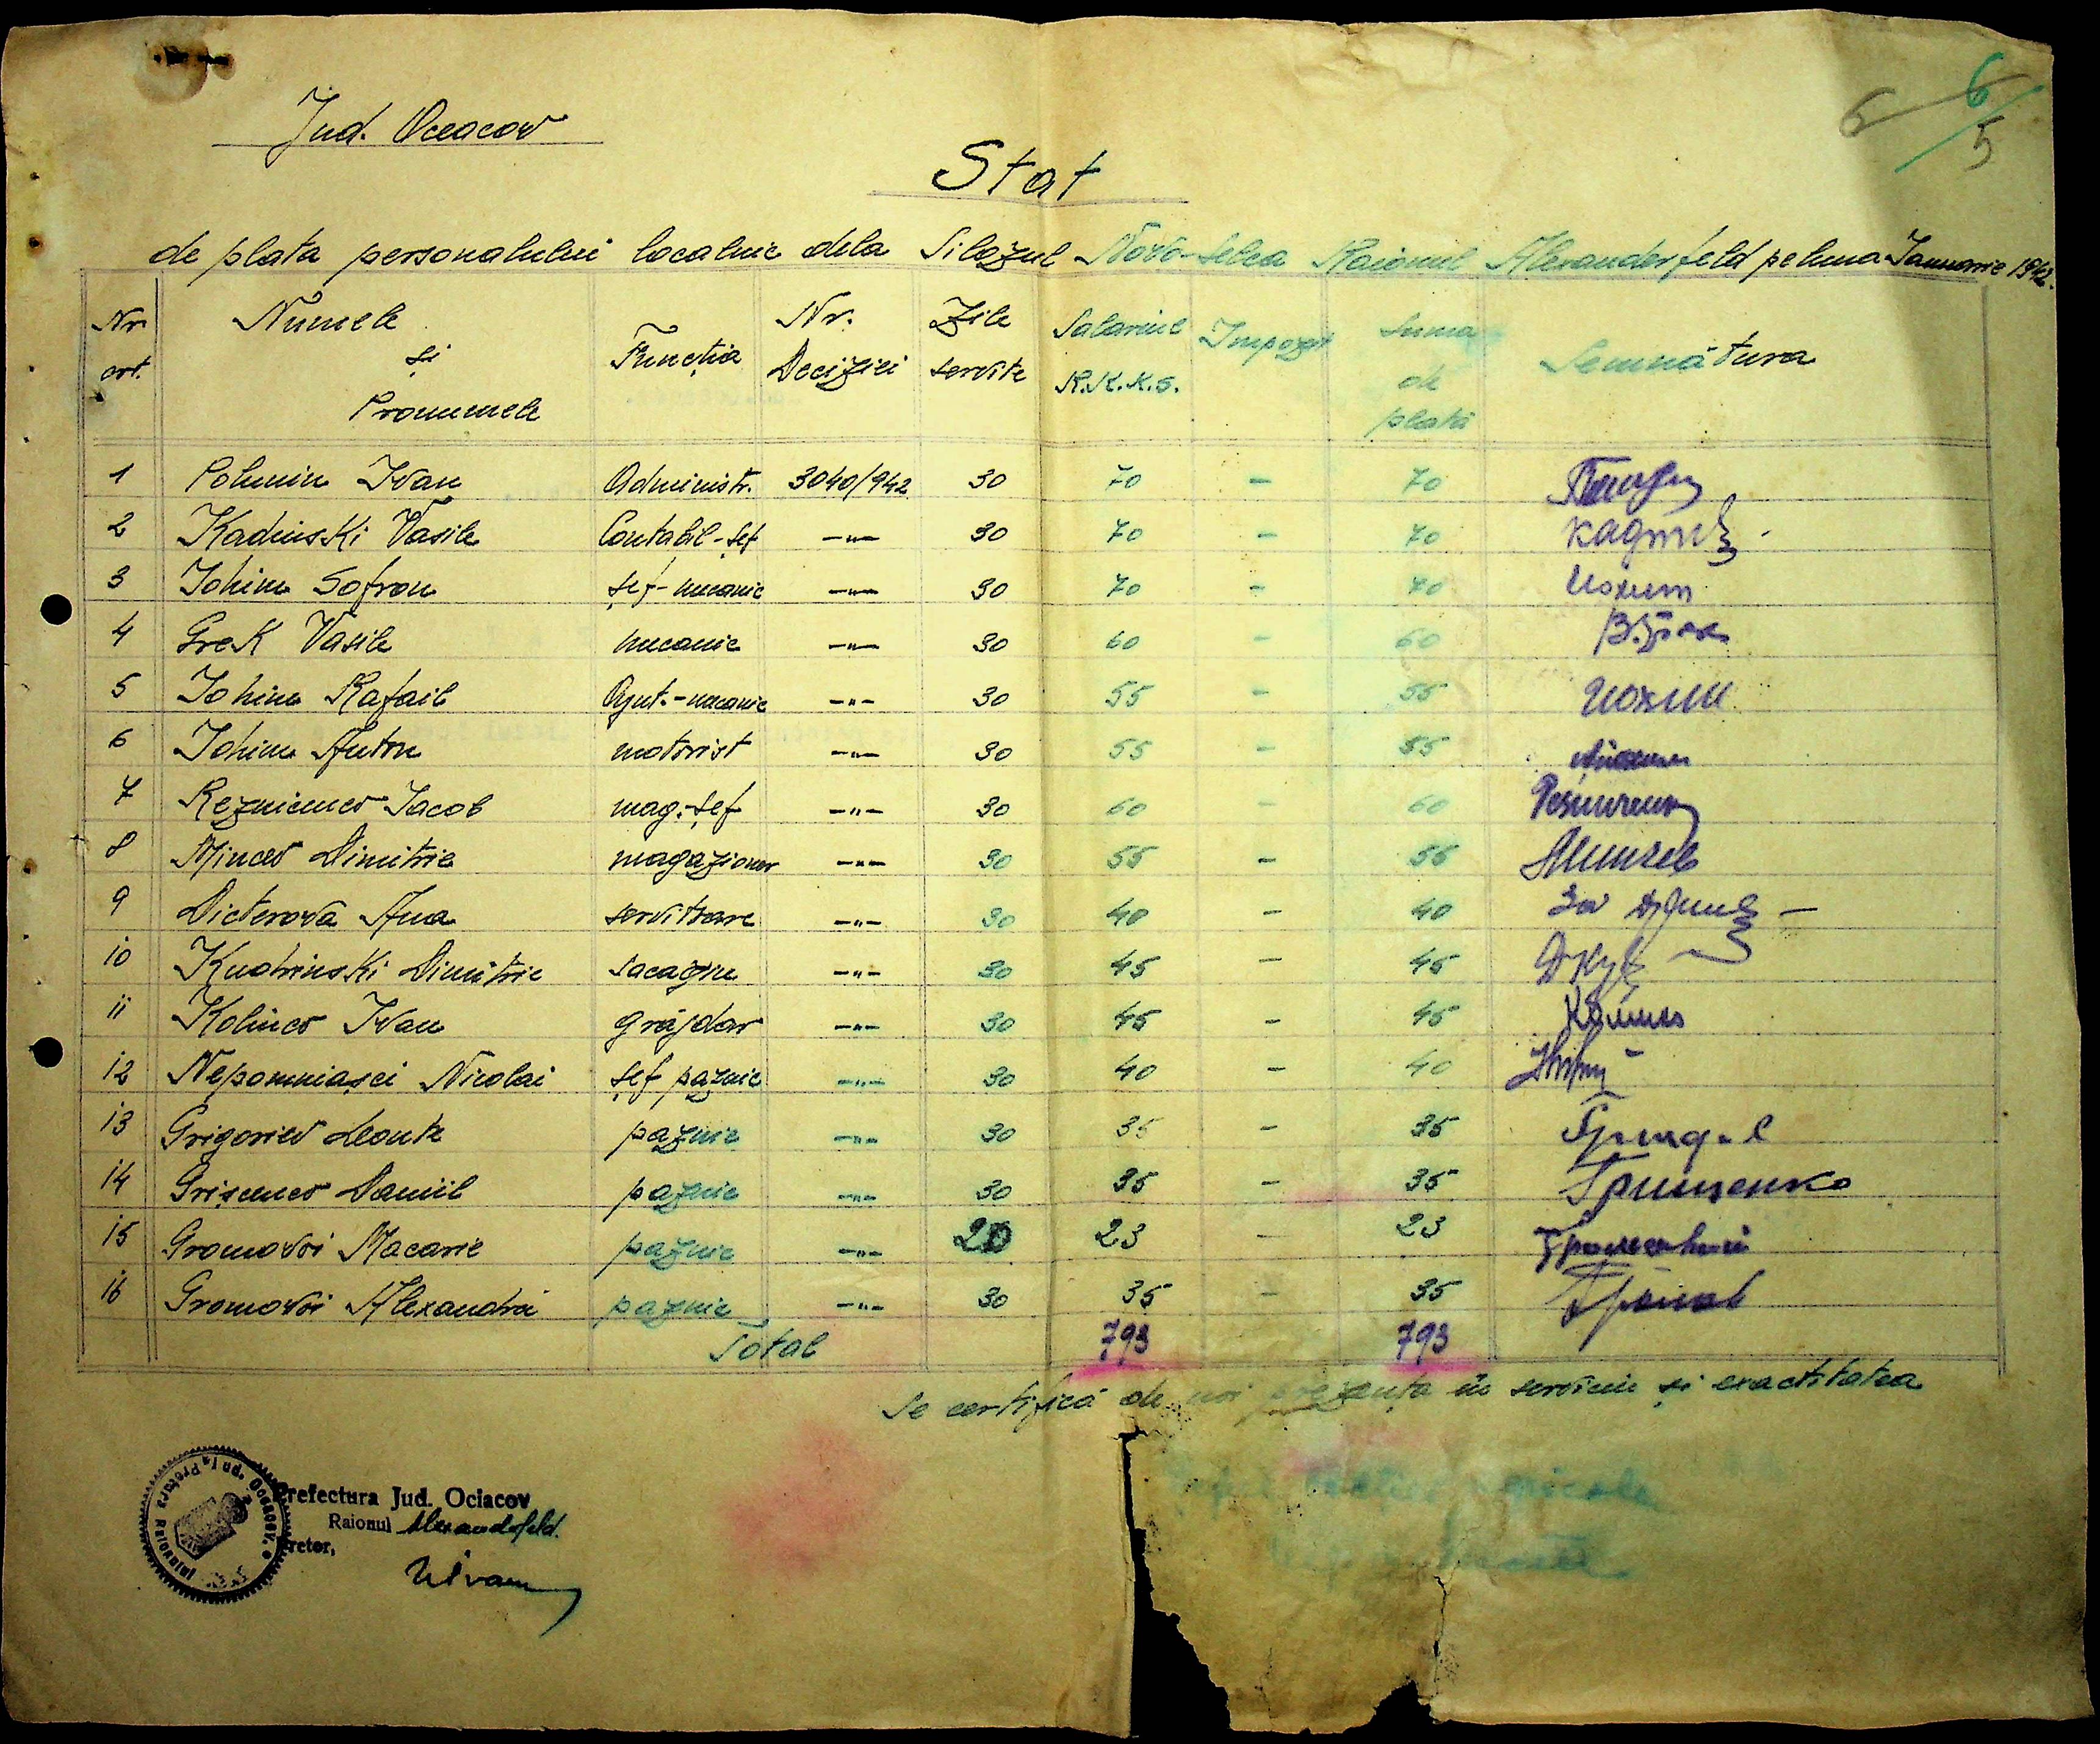 6 6/5
Jud. Oceacov
Stat
de plata personalului localnic dela Silozul Novo-Selca Raionul Alexanderfeld pe luna Ianuarie 1942.
Nr. crt. Numele și Pronumele Funcția Nr. Deciziei Zile servite Salariul R.K.K.S. Impozit Suma de plată Semnătura
1 Polunin Ivan Administr. 3040/942 30 70 - 70
2 Kadinski Vasile Contabil-șef -"- 30 70 - 70
3 Iohim Sofron șef-mecanic -"- 30 70 - 70 Иохим
4 Grek Vasile mecanic -"- 30 60 - 60 В.Грек
5 Iohim Rafail Ajut.-mecanic -"- 30 55 - 55 Иохим
6 Iohim Anton motorist -"- 30 55 - 55
7 Reznicenco Iacob mag.-șef -"- 30 60 - 60
8 Mincev Dimitrie magazioner -"- 30 55 - 55 Минчев
9 Dicterova Ana servitoare -"- 30 40 - 40 За
10 Kudrinski Dimitrie sacagiu -"- 30 45 - 45
11 Kolinco Ivan grăjdar -"- 30 45 - 45
12 Nepomniașci Nicolai șef paznic -"- 30 40 - 40
13 Grigoriev Leonte paznic -"- 30 35 - 35
14 Grișcenco Daniil paznic -"- 30 35 - 35 Грищенко
15 Gromovoi Macarie paznic -"- 20 23 - 23
16 Gromovoi Alexandru paznic -"- 30 35 - 35
Total 793 793
Se certifică de noi prezența în serviciu și exactitatea
Prefectura Jud. Ociacov
Raionul Alexandefeld.
Pretor,